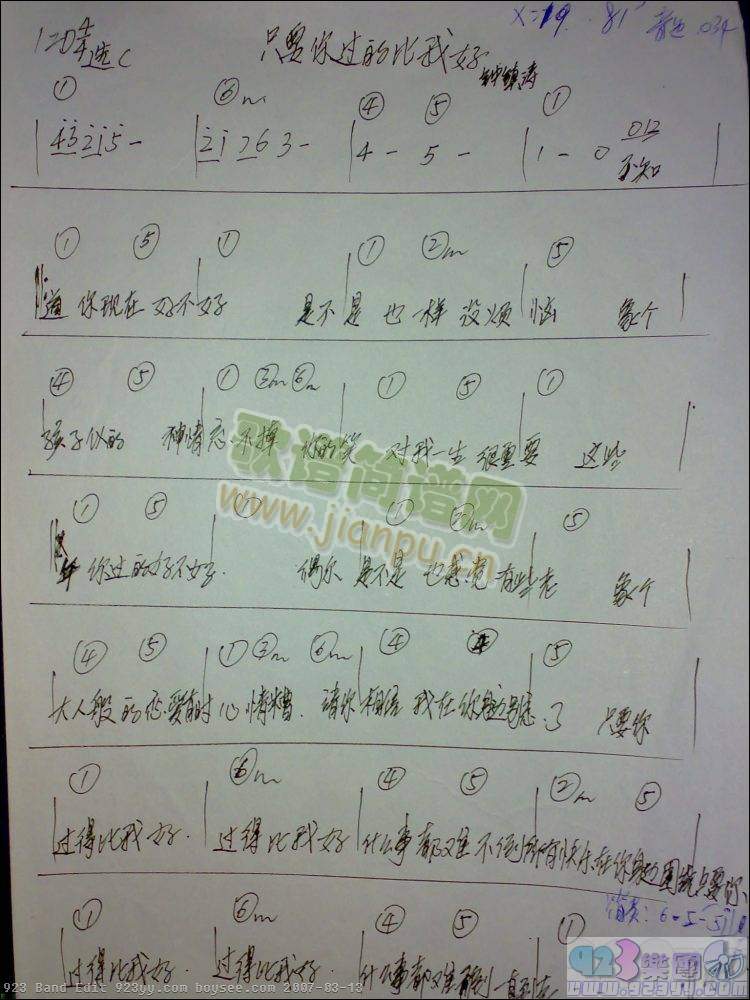 X=19 81 音色 034
1=D 4/4 选C 只要你过的比我好 钟镇涛
① ⑥m ④ ⑤ ①
| 4321 5 - | 21 7 6 3 - | 4 - 5 - | 1 - 0 012 |
不知
① ⑤ ① ① ②m ⑤
道 你现在 好不好 是不是 也一样 没烦恼 象个
④ ⑤ ① ③m ⑥m ① ⑤ ①
孩子似的 神情忘不掉 你的笑 对我一生 很重要 这些
歌谱简谱网
www.jianpu.cn
① ⑤ ① ① ②m ⑤
年 你过的好不好 偶尔 是不是 也感觉 有些老 象个
④ ⑤ ① ③m ⑥m ④ ④ ⑤
大人般的恋爱有时心情糟 请你相信 我在你 了 只要你
① ⑥m ④ ⑤ ②m ⑤
过得比我好 过得比我好 什么事都难不倒所有快乐在你身边围绕只要你
① ⑥m ④ ⑤ ①
过得比我好 过得比我好 什么事都难不倒 一直到老
923 Band Edit 923yy.com boysee.com 2007-03-13
923樂團
www.923yy.com